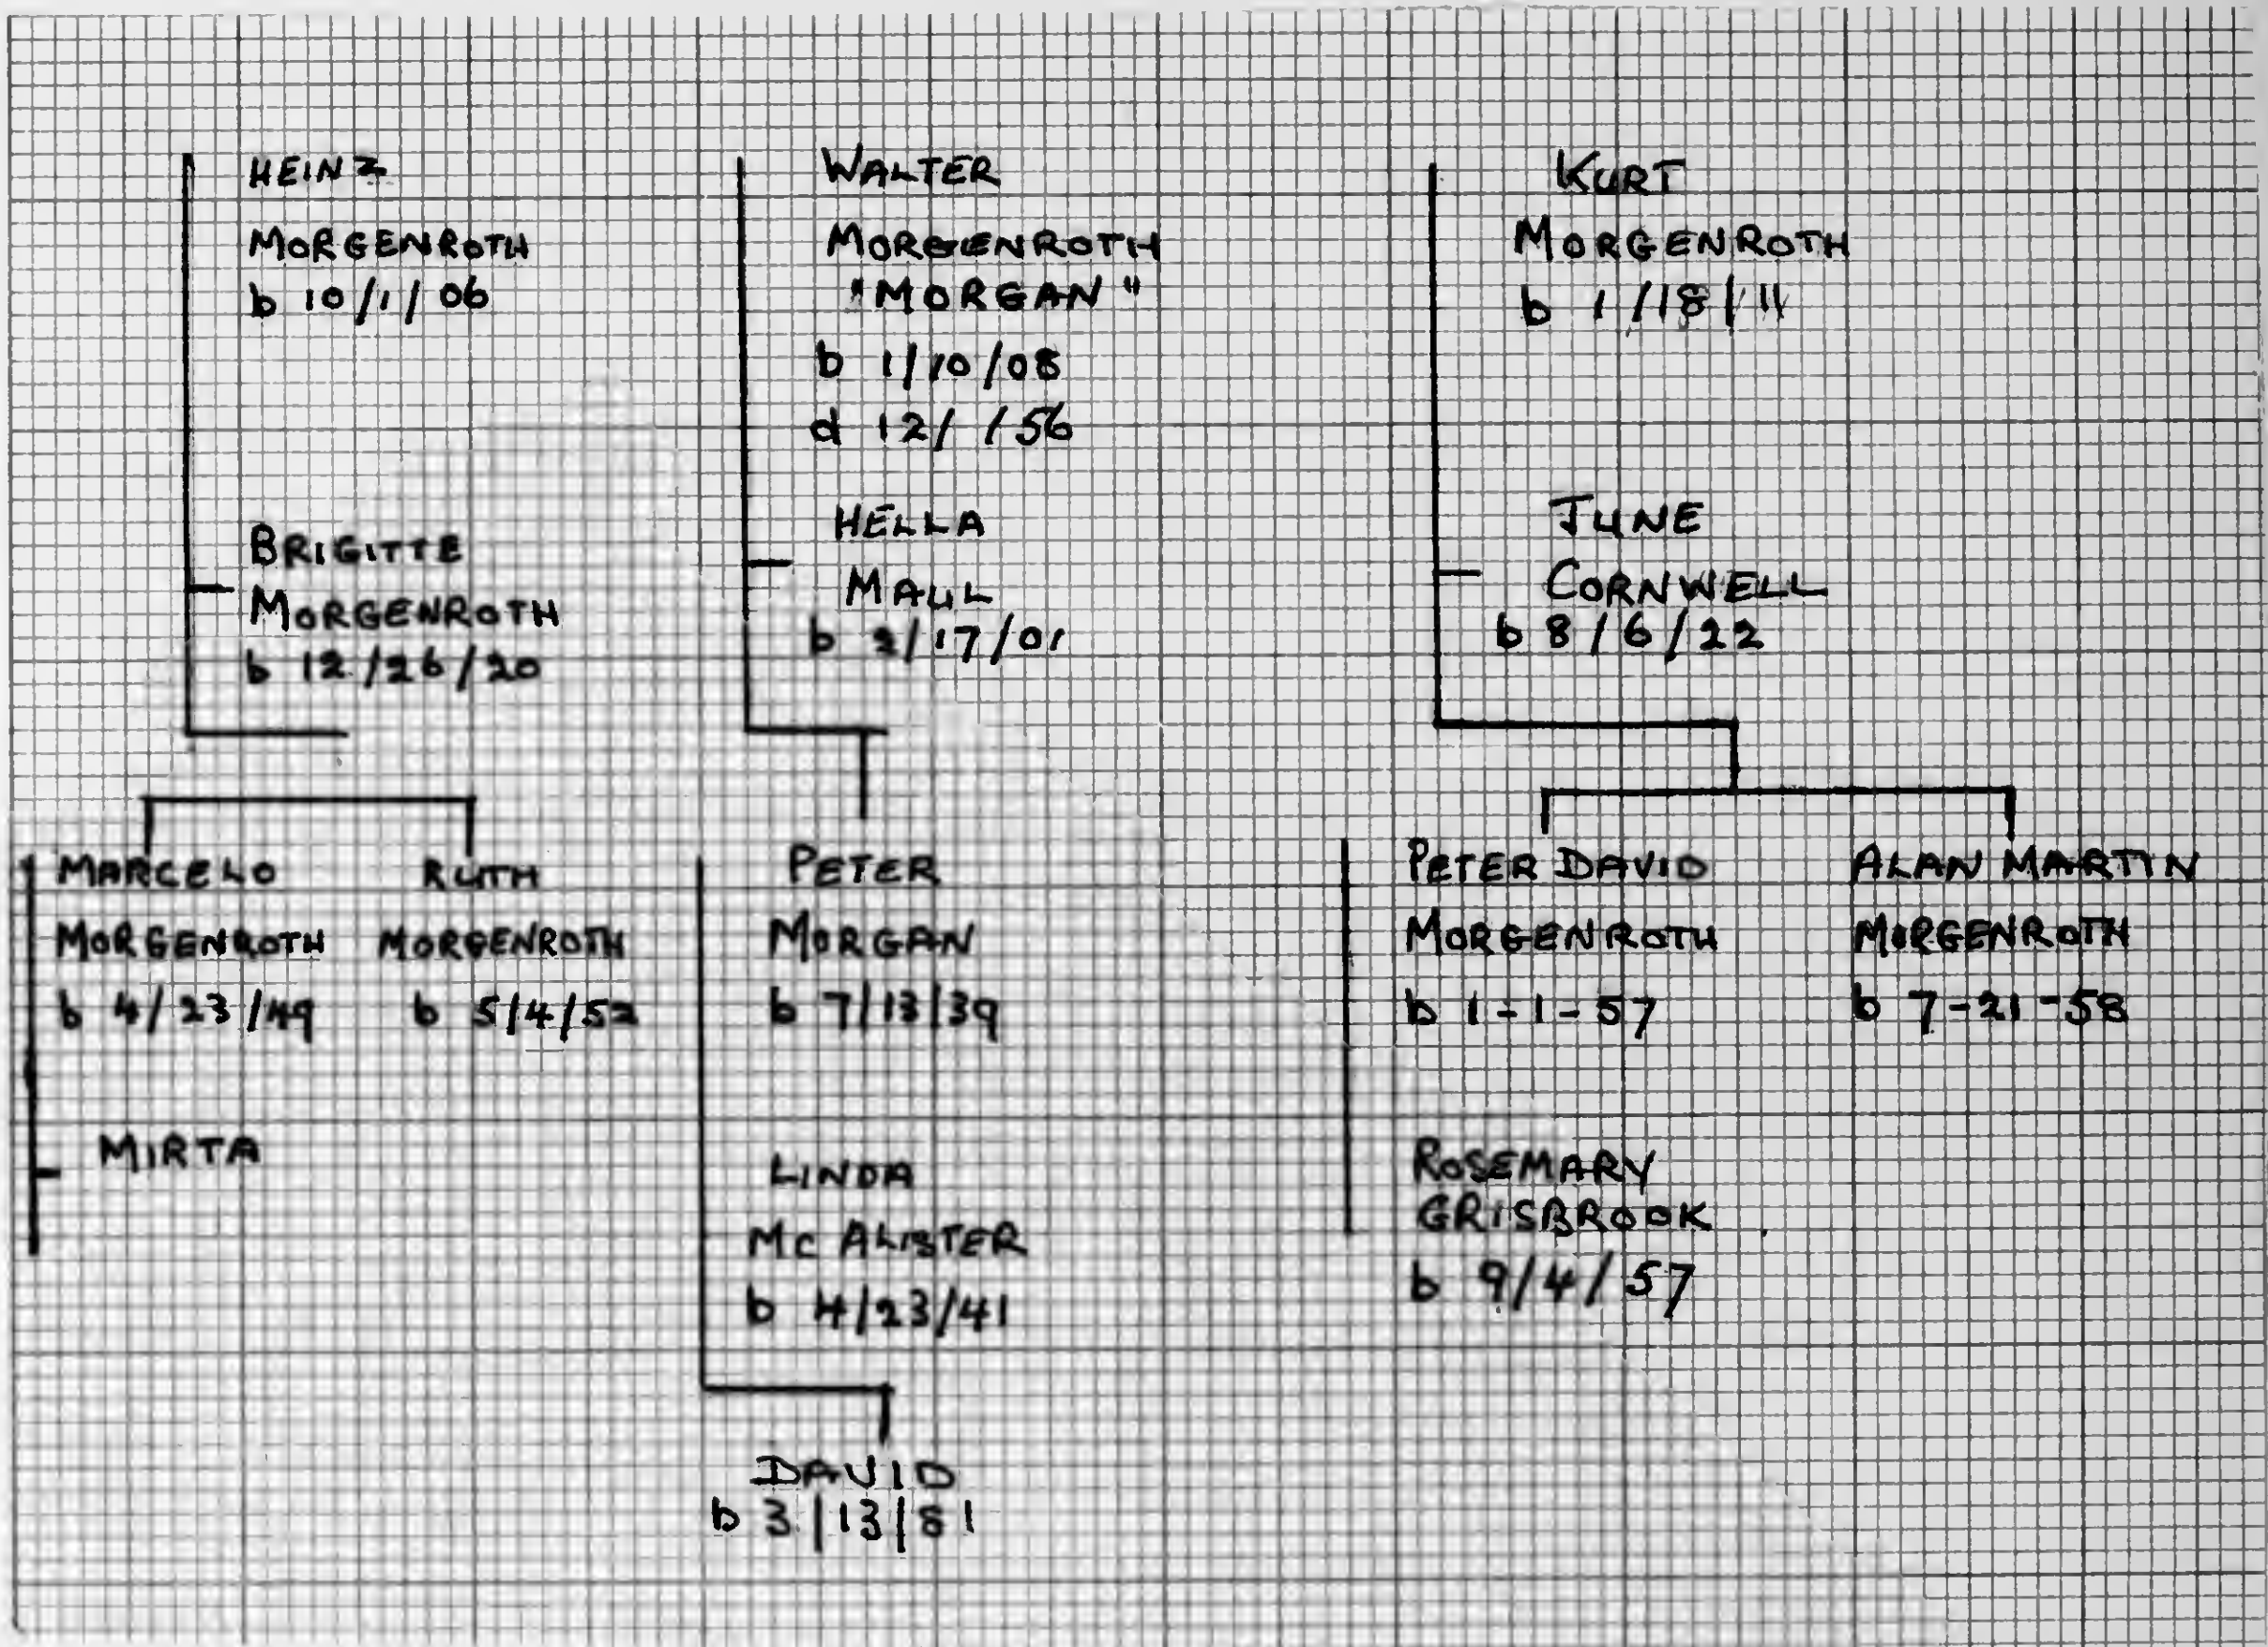 HEINZ
MORGENROTH
b 10/1/06
BRIGITTE
MORGENROTH
b 12/26/20
WALTER
MORGENROTH
"MORGAN"
b 1/10/08
d 12/ /56
HELLA
MAUL
b 2/17/01
KURT
MORGENROTH
b 1/18/11
JUNE
CORNWELL
b 8/6/22
MARCELO
MORGENROTH
b 4/23/49
MIRTA
RUTH
MORGENROTH
b 5/4/52
PETER
MORGAN
b 7/13/39
LINDA
Mc ALISTER
b 4/23/41
DAVID
b 3/13/81
PETER DAVID
MORGENROTH
b 1-1-57
ROSEMARY
GRISBROOK
b 9/4/57
ALAN MARTIN
MORGENROTH
b 7-21-58